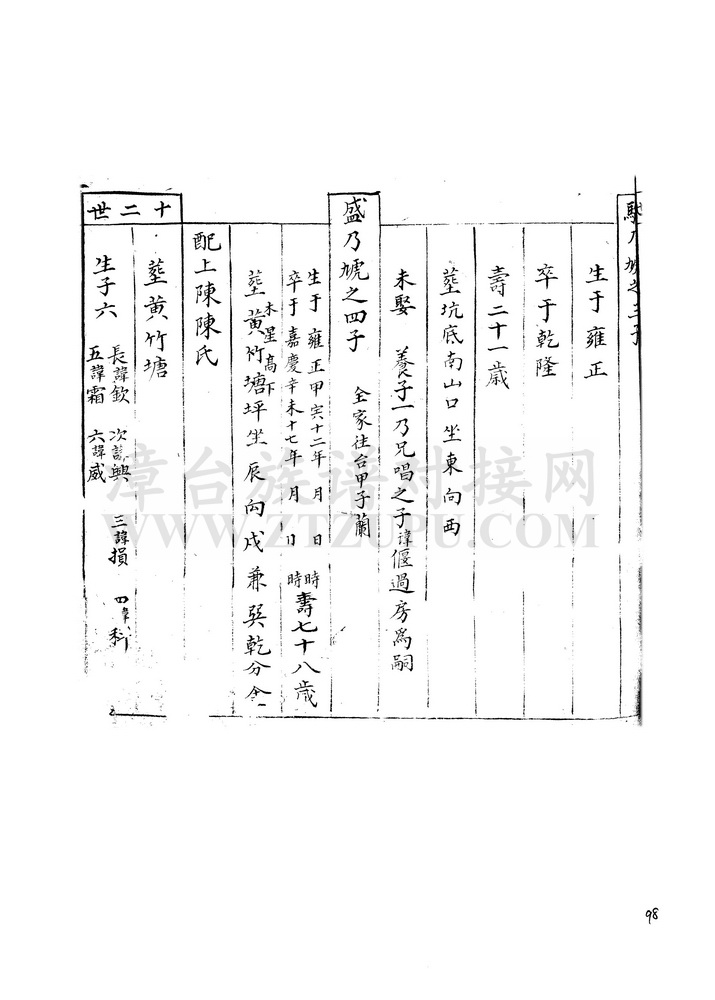 乃虓之三子
生于雍正
卒于乾隆
壽二十一歲
塟坑底南山口坐東向西
未娶 養子一乃兄唱之子諱偃過房為嗣
盛乃虓之四子 全家往台甲子蘭
生于雍正甲寅十二年 月 日 時
卒于嘉慶辛未十七年 月 日 時 壽七十八歲
塟黃竹塘坪坐辰向戌兼巽乾分金
木星高下
配上陳陳氏
塟黃竹塘
十二世
生子六 長諱欽 次諱興 三諱損 四諱科
五諱霜 六諱威
漳台族谱对接网
WWW.ZTZUPU.COM
98